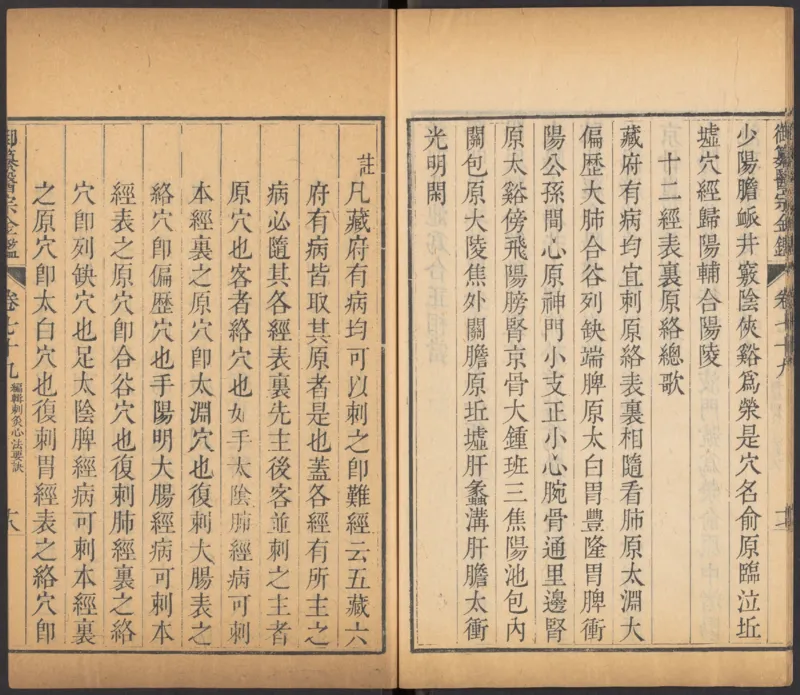 御纂醫宗金鑑
卷七十九
少陽膽蚸井竅陰俠谿爲滎是穴名俞原臨泣坵
墟穴經歸陽輔合陽陵
十二經表裏原絡總歌
藏府有病均宜刺原絡表裏相隨看肺原太淵大
偏歷大肺合谷列缺端脾原太白胃豐隆胃脾衝
陽公孫間心原神門小支正小心腕骨通里邊腎
原太谿傍飛陽膀腎京骨大鍾班三焦陽池包內
關包原大陵焦外關膽原坵墟肝蠡溝肝膽太衝
光明閑
註
凡藏府有病均可以刺之卽難經云五藏六
府有病皆取其原者是也蓋各經有所主之
病必隨其各經表裏先主後客並刺之主者
原穴也客者絡穴也如手太陰肺經病可刺
本經裏之原穴卽太淵穴也復刺大腸表之
絡穴卽偏歷穴也手陽明大腸經病可刺本
經表之原穴卽合谷穴也復刺肺經裏之絡
穴卽列缺穴也足太陰脾經病可刺本經裏
之原穴卽太白穴也復刺胃經表之絡穴卽
御纂醫宗金鑑
卷七十九
編輯刺灸心法要訣